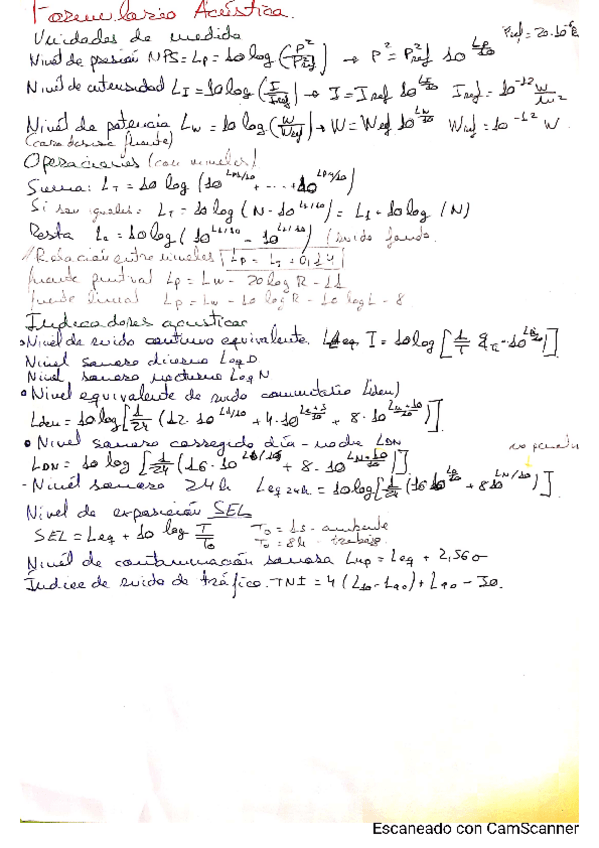 Formulario Acústica.
Unidades de medida
Pref = 20·10^-6
Nivel de presión NPS = Lp = 10 log (P²/P²ref) → P² = P²ref 10^(Lp/10)
Nivel de intensidad L_I = 10 log (I/Iref) → I = Iref 10^(LI/10) Iref = 10^-12 W/m²
Nivel de potencia Lw = 10 log (W/Wref) → W = Wref 10^(Lw/10) Wref = 10^-12 W
(caracteriza fuente)
Operaciones (con niveles)
Suma: L_T = 10 log (10^(Lp1/10) + ... + 10^(Lpn/10))
Si son iguales: L_T = 10 log (N · 10^(L1/10)) = L1 + 10 log (N)
Resta L = 10 log (10^(L1/10) - 10^(L2/10)) (ruido fondo.
Relación entre niveles Lp = LI + 0,14
fuente puntual Lp = Lw - 20 log R - 11
fuente lineal Lp = Lw - 10 log R - 10 log L - 8
Indicadores acústicos
Nivel de ruido continuo equivalente. Leq, T = 10 log [1/T Σ Ti · 10^(Li/10)]
Nivel sonoro diurno Leq D
Nivel sonoro nocturno Leq N
Nivel equivalente de ruido comunitario (Lden)
Lden = 10 log [1/24 (12 · 10^(Ld/10) + 4 · 10^((Le+5)/10) + 8 · 10^((Ln+10)/10))]
Nivel sonoro corregido día - noche LDN
LDN = 10 log [1/24 (16 · 10^(LD/10) + 8 · 10^((LN+10)/10))]
- Nivel sonoro 24h Leq 24h = 10 log [1/24 (16 10^(LD/10) + 8 10^(LN/10))]
Nivel de exposición SEL
SEL = Leq + 10 log T/T0 T0 = 1s - ambiente
T0 = 8h - trabajo
Nivel de contaminación sonora LNP = Leq + 2,56σ
Índice de ruido de tráfico. TNI = 4 (L10 - L90) + L90 - 30.
Escaneado con CamScanner